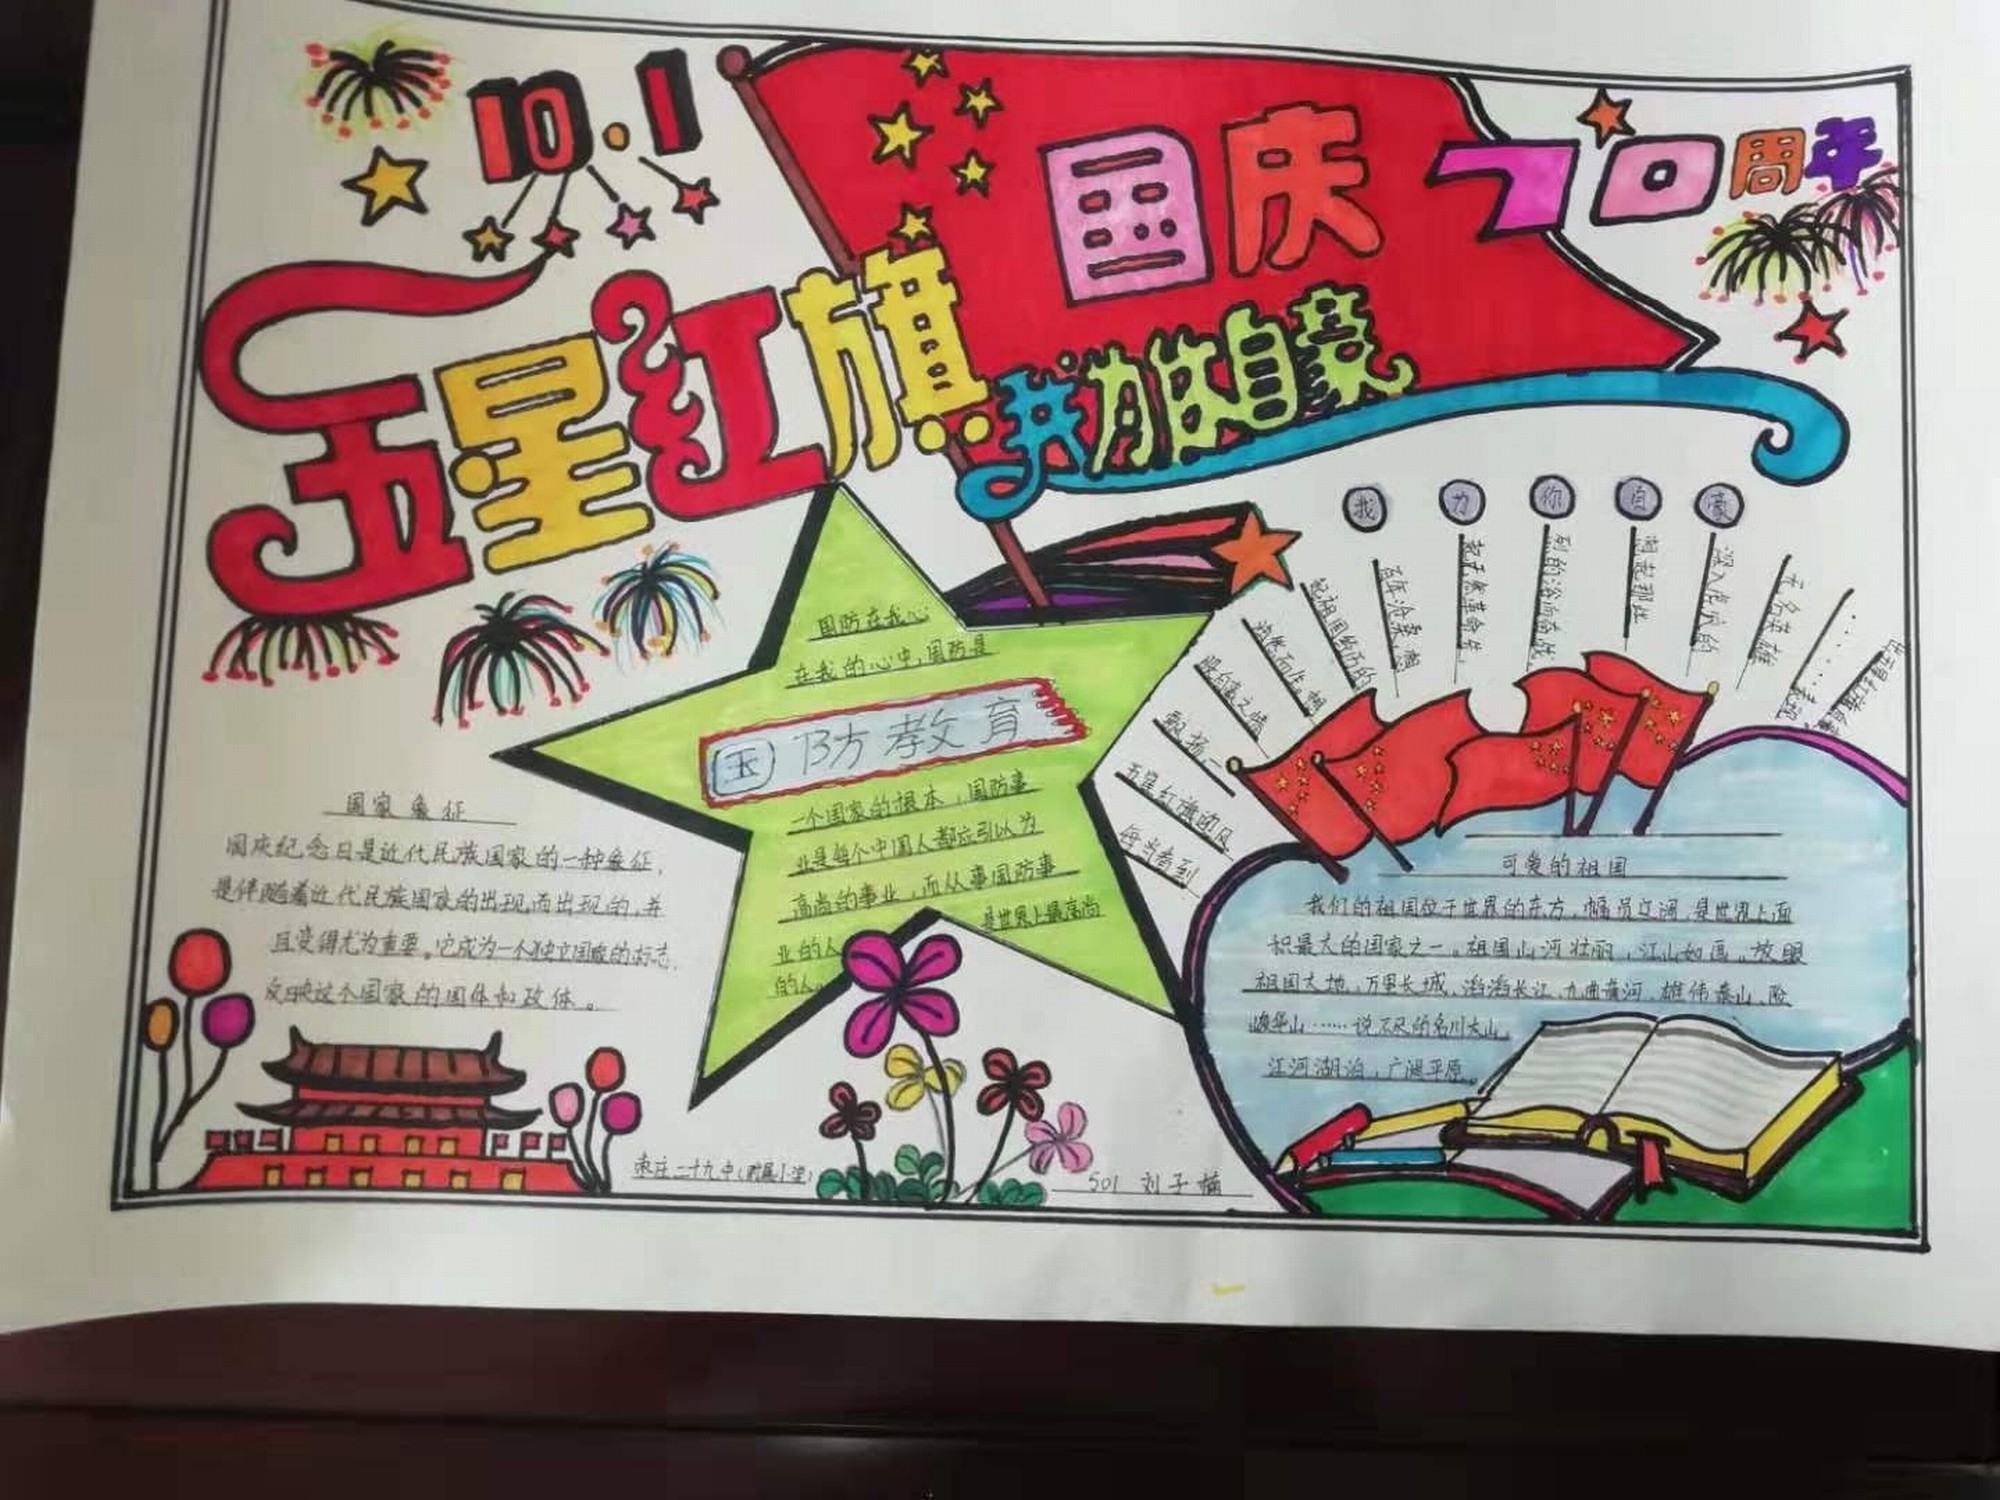 10.1
国庆70周年
五星红旗
我为你自豪
我为你自豪
国防在我心
在我的心中,国防是
国防教育
一个国家的根本,国防事
业是每个中国人都应引以为
高尚的事业,而从事国防事
业的人
是世界上最高尚
的人。
国家象征
国庆纪念日是近代民族国家的一种象征,
是伴随着近代民族国家的出现而出现的,并
且变得尤为重要。它成为一个独立国家的标志,
反映这个国家的国体和政体。
每当看到
五星红旗迎风
飘扬,一
股自豪之情
油然而生。想
起祖国经历的
百年沧桑,想
烈的浴血奋战,
想起那些
深入虎穴的
无名英雄
可爱的祖国
我们的祖国位于世界的东方,幅员辽阔,是世界上面
积最大的国家之一。祖国山河壮丽,江山如画。放眼
祖国大地,万里长城、滔滔长江、九曲黄河、雄伟泰山、险
峻华山……说不尽的名川大山,
江河湖泊,广阔平原。
枣庄二十九中(附属小学)
501 刘子楠